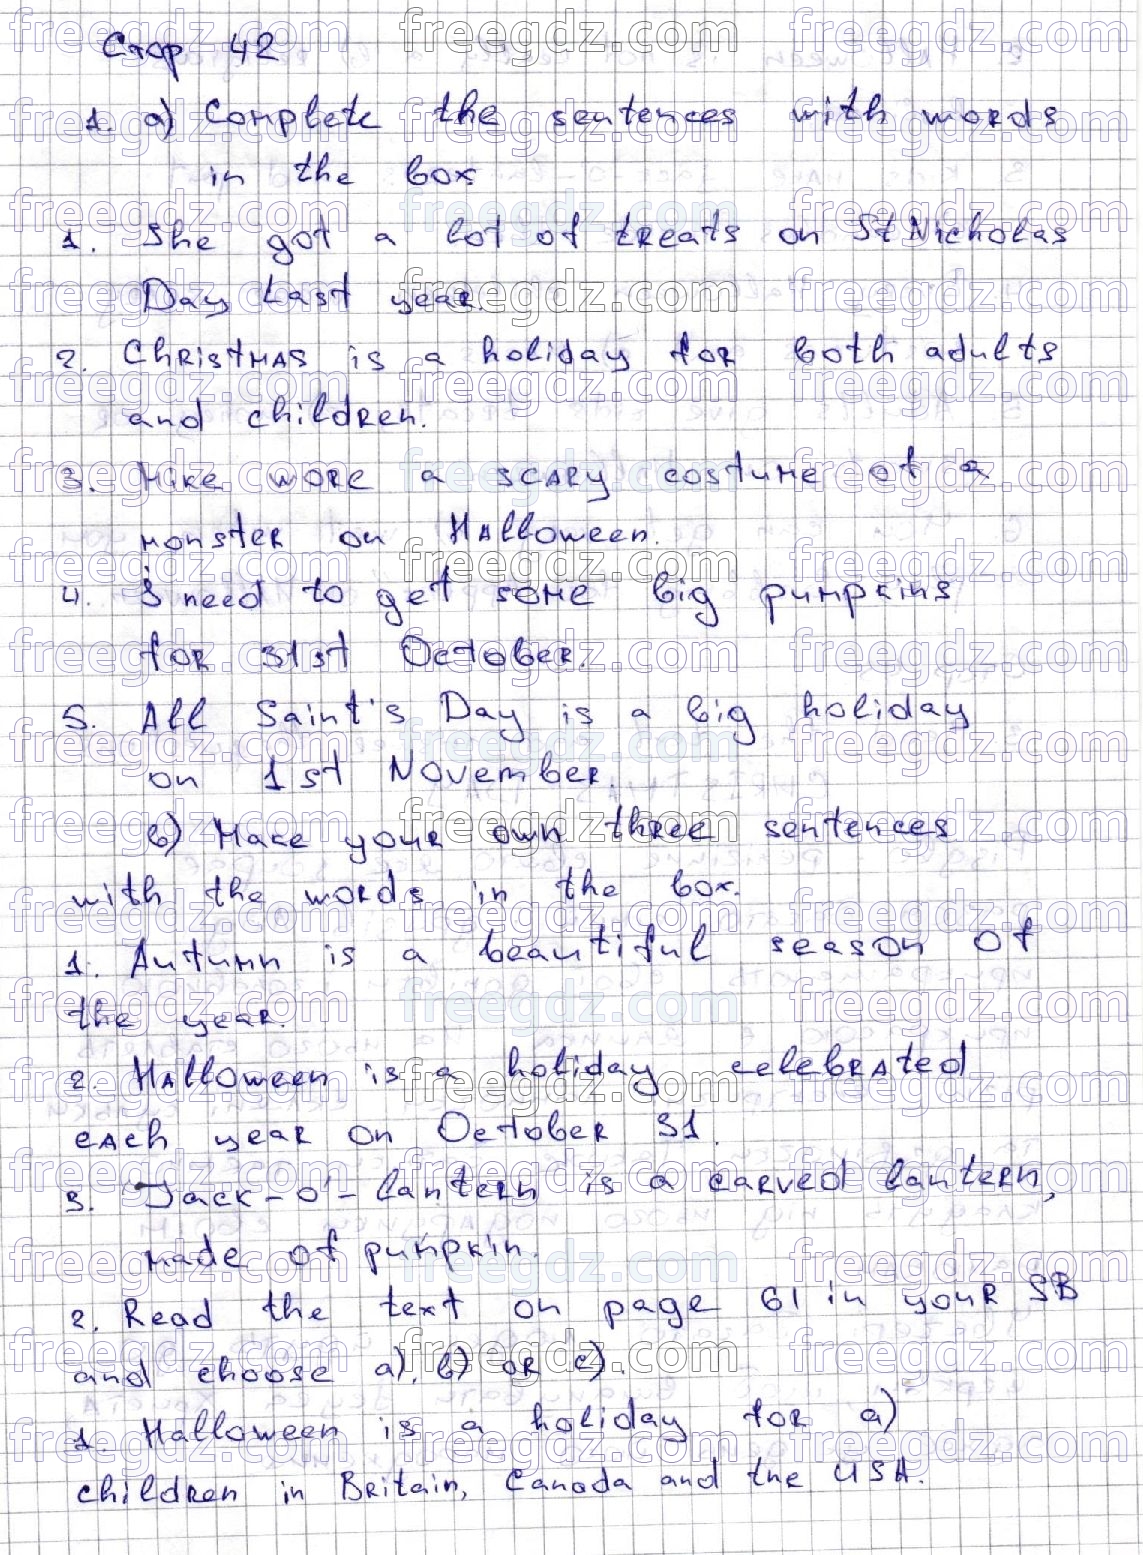 Стор 42
1. a) Complete the sentences with words
in the box
1. She got a lot of treats on St Nicholas
Day last year.
2. Christmas is a holiday for both adults
and children.
3. Mike wore a scary costume of a
monster on Halloween.
4. I need to get some big pumpkins
for 31st October.
5. All Saint's Day is a big holiday
on 1st November.
b) Make your own three sentences
with the words in the box.
1. Autumn is a beautiful season of
the year.
2. Halloween is a holiday celebrated
each year on October 31.
3. Jack-o'-lantern is a carved lantern,
made of pumpkin.
2. Read the text on page 61 in your SB
and choose a), b) or c).
1. Halloween is a holiday for a)
children in Britain, Canada and the USA.
freegdz.com